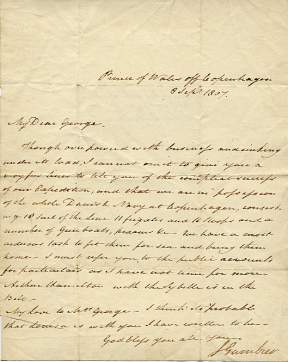 Prince of Wales off Copenhagen
8 Sept 1807.
My Dear George.
Though overpowered with business and sinking
under its load, I cannot omit to give you a
lines to tell you of the compleat success
of our Expedition, and that we are in possession
of the whole Danish Navy at Copenhagen, consist
ing 18 Sail of the Line 11 frigates and Sloops and a
number of Gun boats, We have a most
arduous task to fit them for sea and bring them
home - I must refer you, to the public accounts
for particulars as I have not time for more
Hamilton with the Sybille is in the
My love to Mrs George - I think it probable
that is with you I have written to
God bless you all Yours
J Gambier